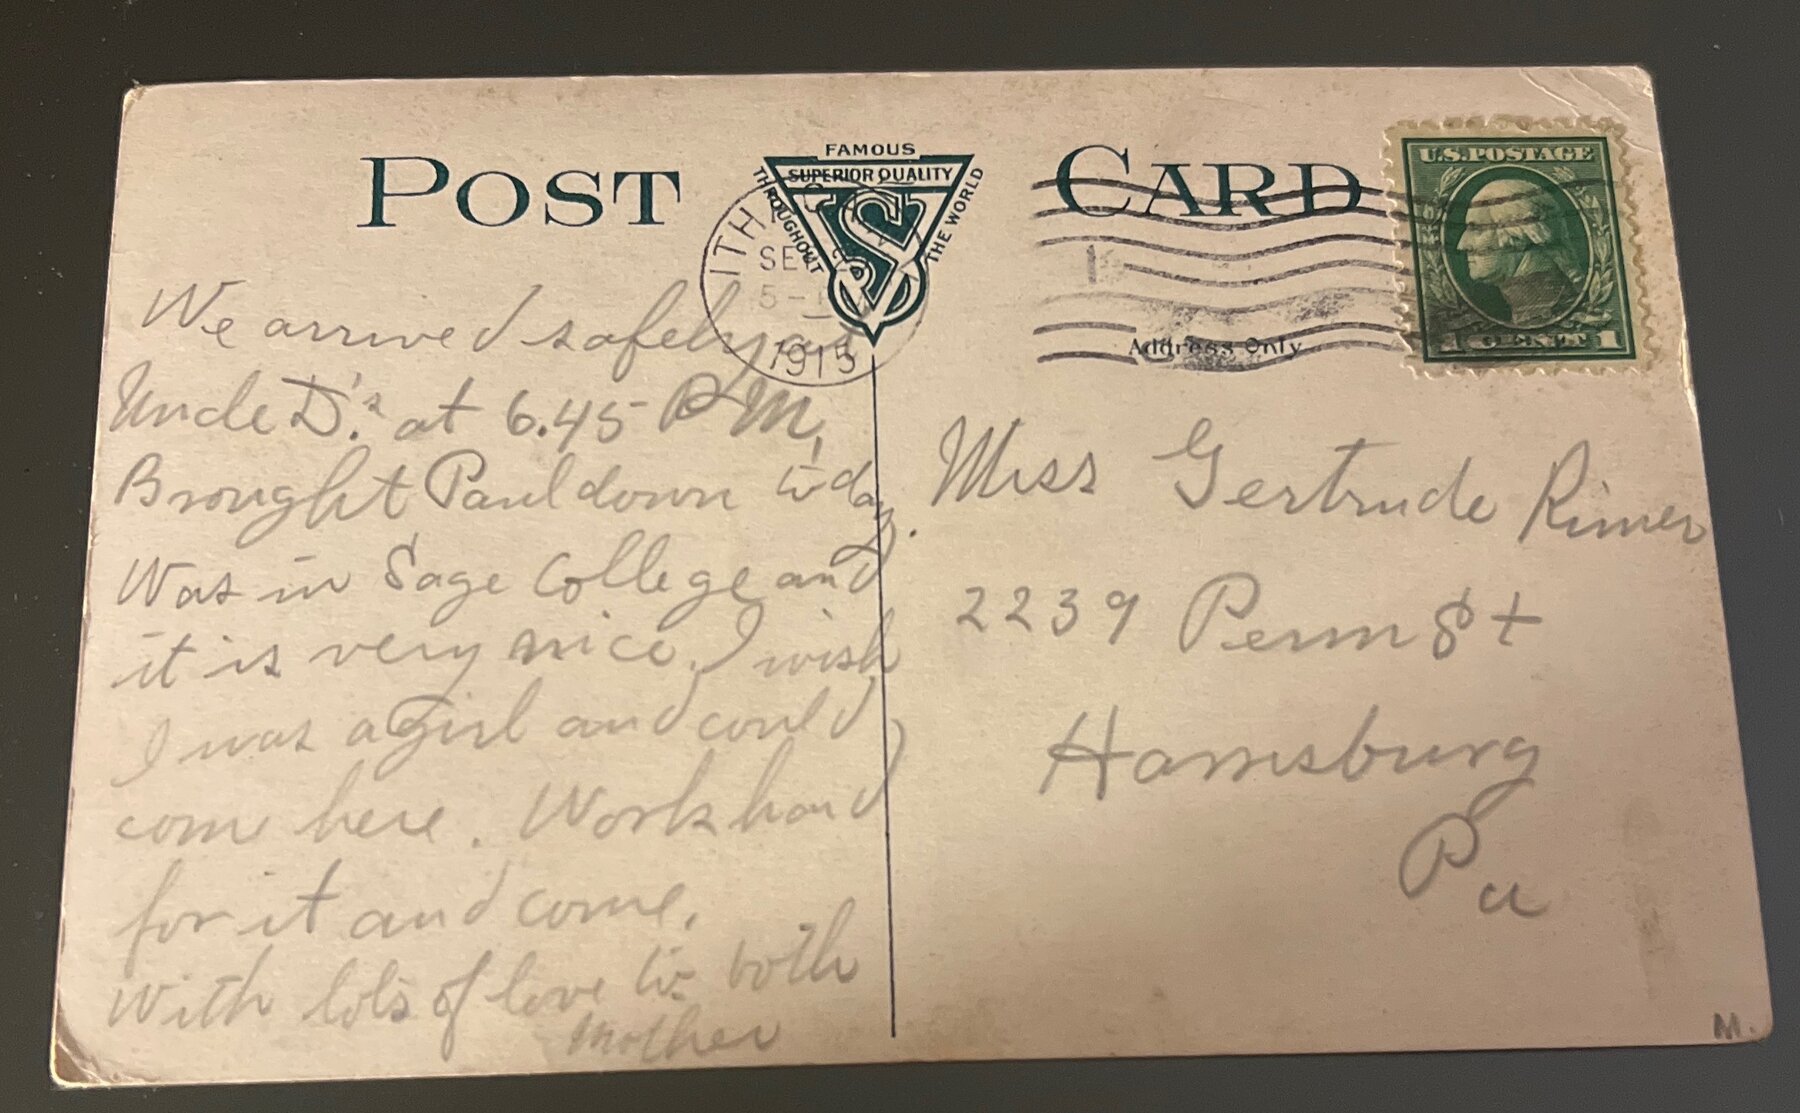 POST CARD
FAMOUS
THROUGHOUT
THE WORLD
SUPERIOR QUALITY
ITHACA
SEP
5-
1915
U.S. POSTAGE
1 CENT 1
Address Only
We arrived safely at
Uncle D's. at 6.45 P.M.
Brought Paul down to day.
Was in Sage College and
it is very nice. I wish
I was a girl and could
come here. Work hard
for it and come.
With lots of love to both
Mother
Miss Gertrude Rimer
2239 Penn St
Harrisburg
Pa
M.